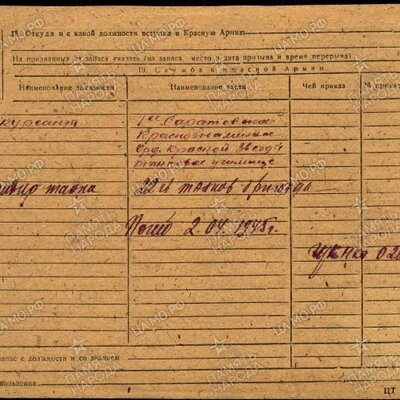 18. Откуда и с какой должности вступил в Красную Армию
На призванных из запаса указать (из запаса, место и дата призыва и время перерыва)
19. Служба в Красной Армии
Наименование должности Наименование части Чей приказ № приказ
курсант 1ое Саратовское
Краснознаменное
Орд. Красной Звезды
танковое училище
танка 22я танков бригада
Погиб 2.04.1945г.
запас с должности и со званием
ЦТ
ПАМЯТЬ НАРОДА
ЦАМО.РФ